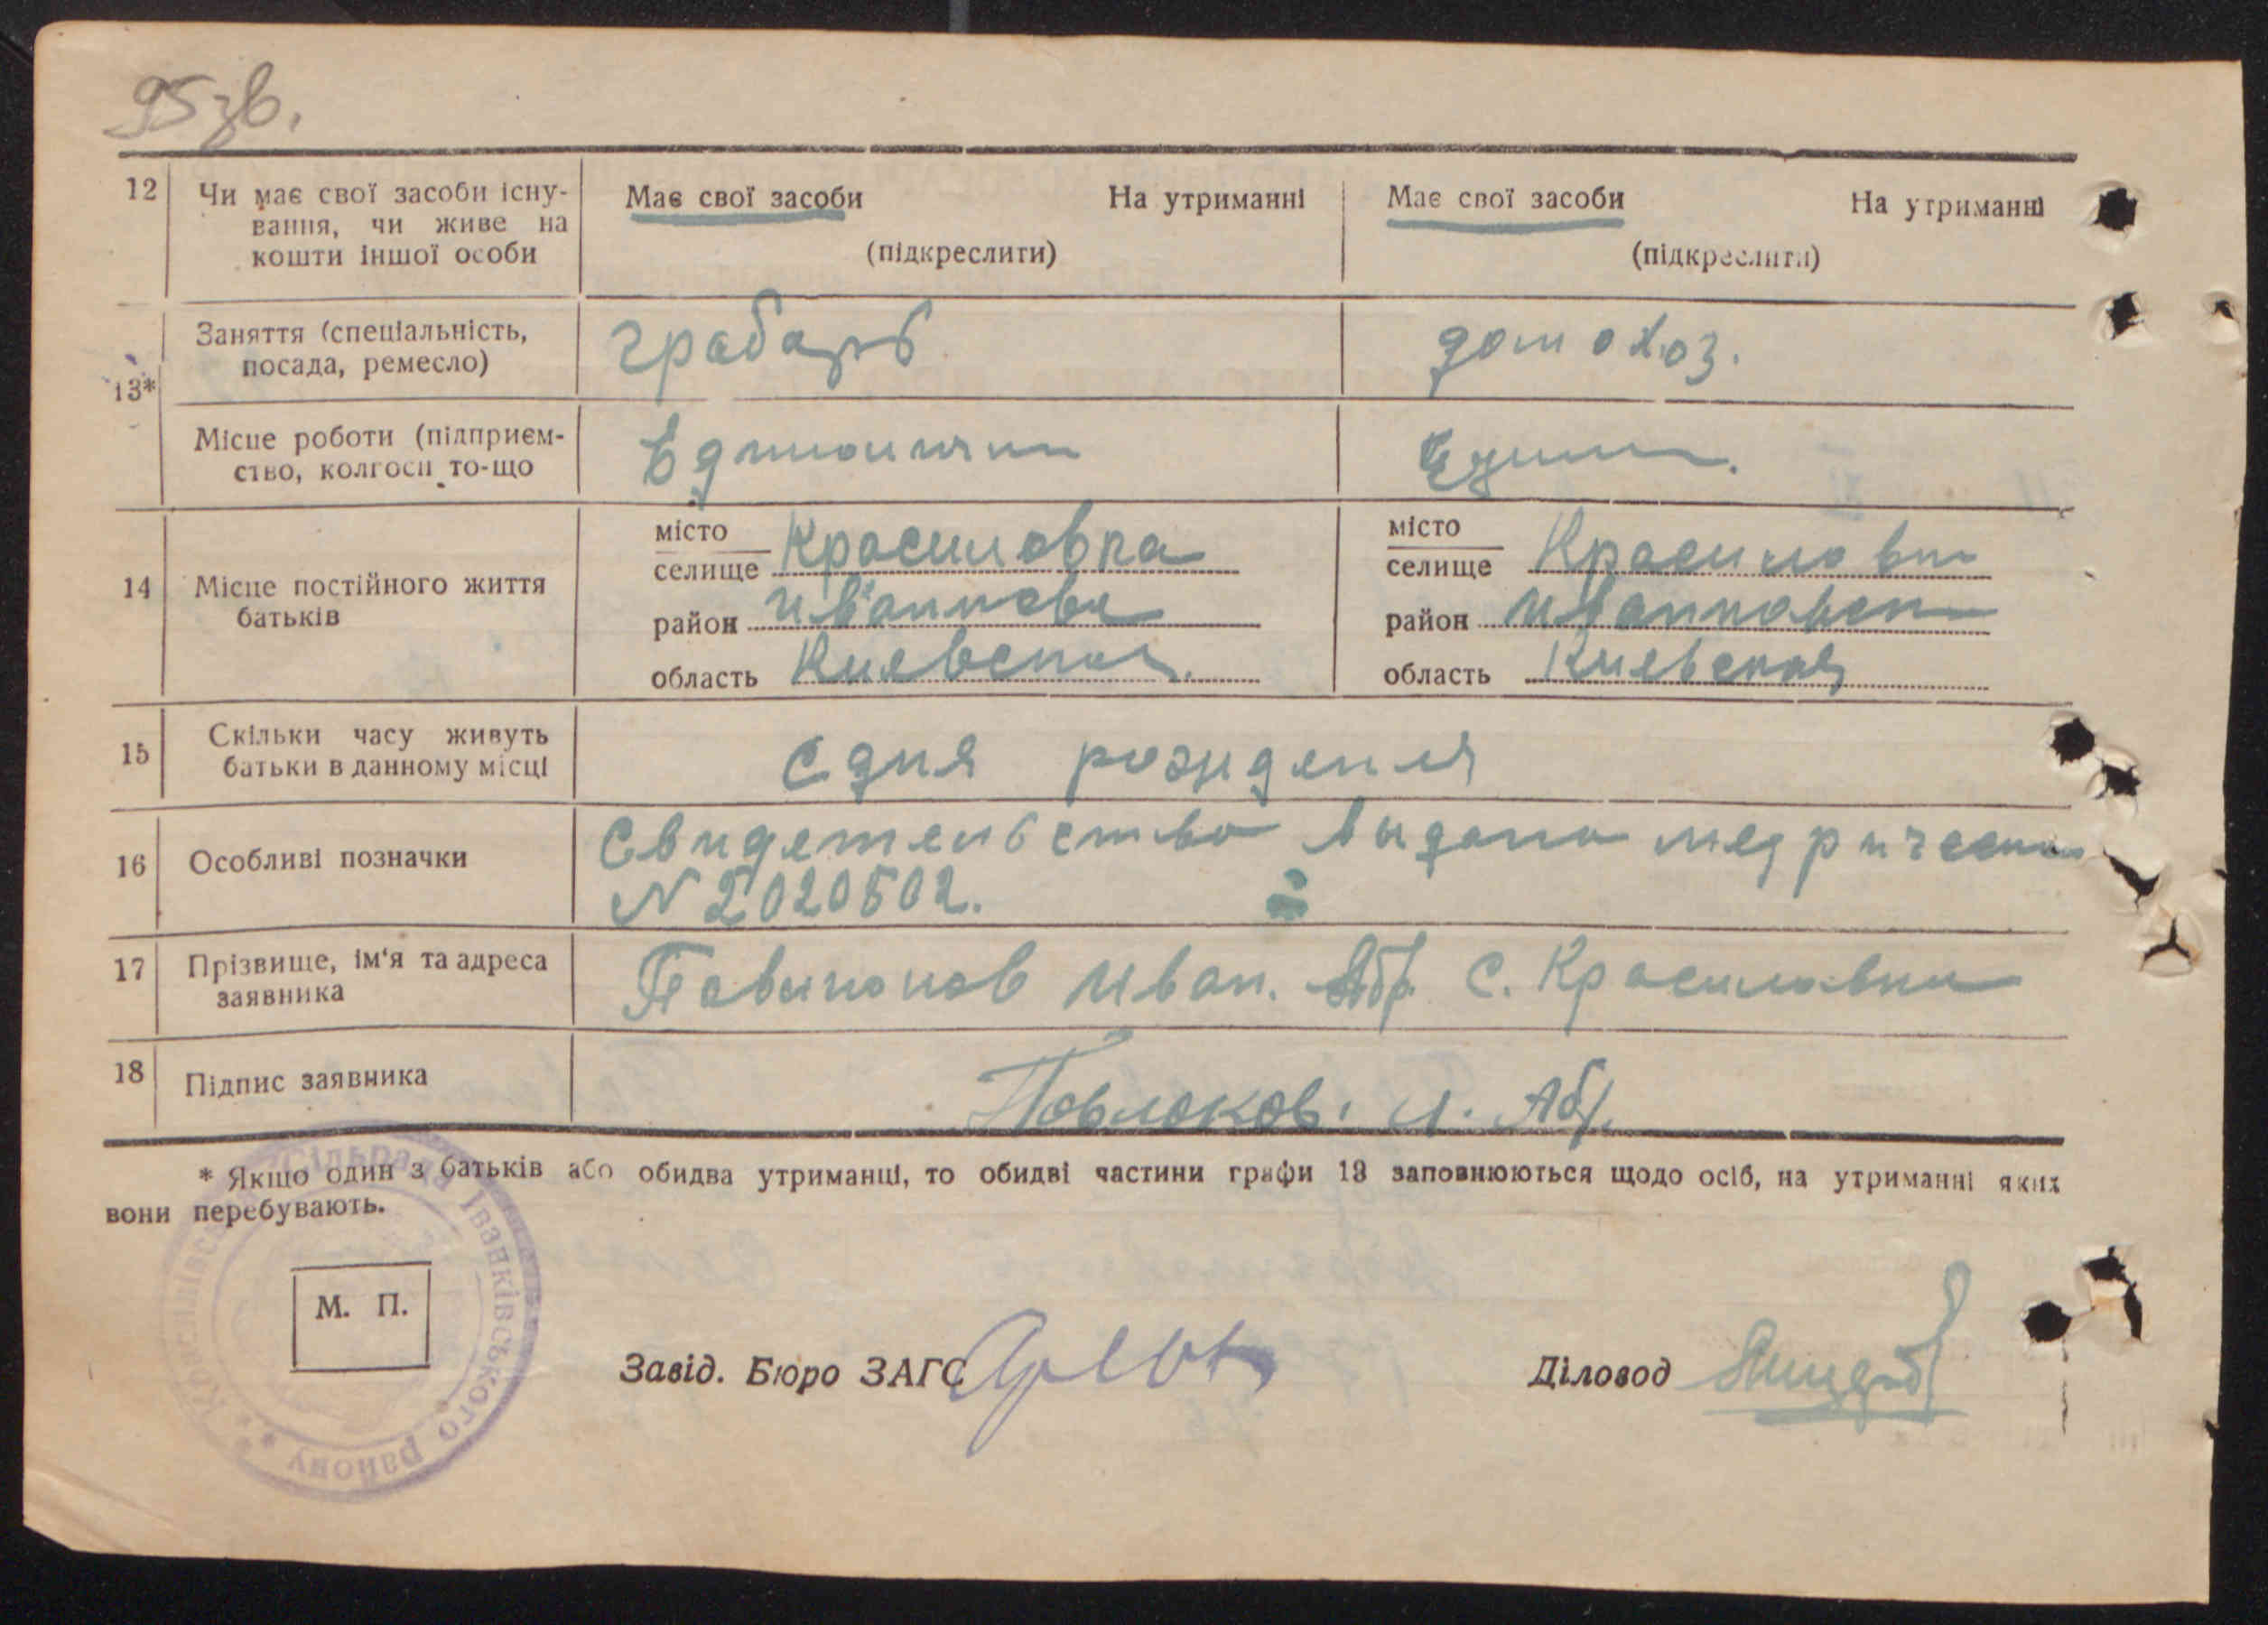 95 зв.
12 Чи має свої засоби існу-
вання, чи живе на
кошти іншої особи
Має свої засоби На утриманні
(підкреслити)
Має свої засоби На утриманні
(підкреслити)
13*
Заняття (спеціальність,
посада, ремесло)
грабарь
домохоз.
Місце роботи (підприєм-
ство, колгосп то-що
14 Місце постійного життя
батьків
місто
селище Красиловка
район
область Киевская
місто
селище Красиловка
район Иванковск
область Киевская
15 Скільки часу живуть
батьки в данному місці
с дня рождения
16 Особливі позначки
Свидетельство выдано
N 2020502.
17 Прізвище, ім'я та адреса
заявника
Иван. Абр. с. Красиловка
18 Підпис заявника
Павлюков. И. Абр.
* Якщо один з батьків або обидва утриманці, то обидві частини графи 13 заповнюються щодо осіб, на утриманні яких
вони перебувають.
М. П.
Сільрада Іванківського району
Завід. Бюро ЗАГС
Діловод